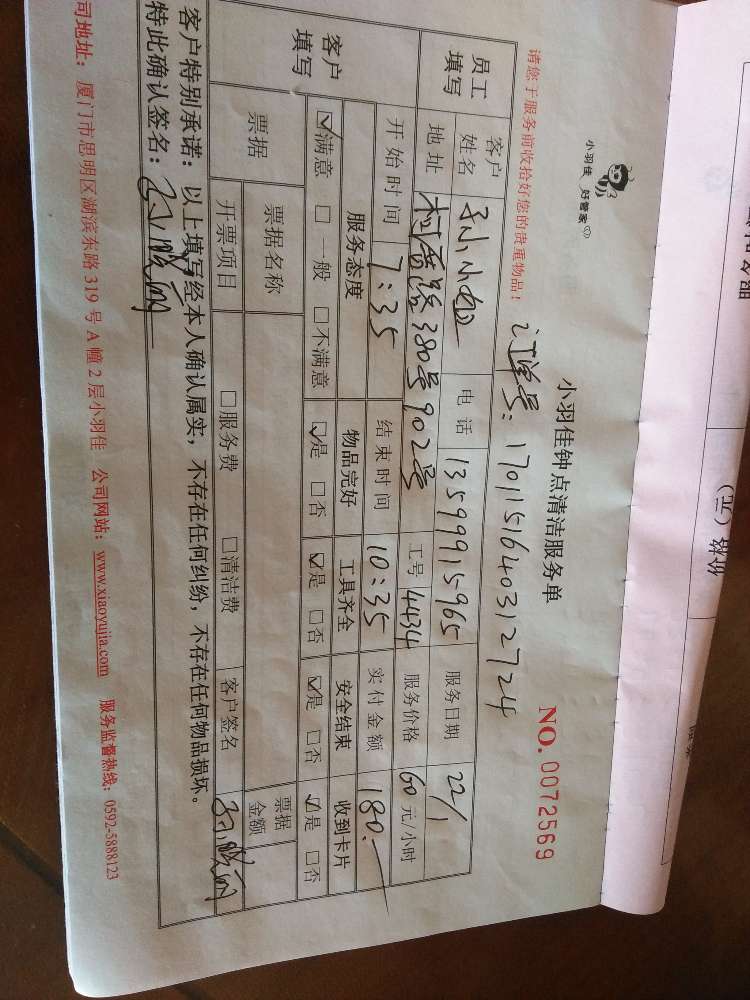 小羽佳 好管家
小羽佳钟点清洁服务单
NO. 0072569
订单号: 1701151640312724
请您于服务前收拾好您的贵重物品!
员工填写
客户姓名 孙小姐 电话 13599915965 服务日期 22/1
地址 380号902号 工号 4434 服务价格 60 元/小时
客户填写
开始时间 7:35 结束时间 10:35 实付金额 180.—
服务态度 物品完好 工具齐全 安全结束 收到卡片
☑满意 □一般 □不满意 ☑是 □否 ☑是 □否 ☑是 □否 ☑是 □否
票据 票据名称 票据金额
开票项目 □服务费 □清洁费 客户签名
客户特别承诺: 以上填写经本人确认属实, 不存在任何纠纷, 不存在任何物品损坏。
特此确认签名:
司地址: 厦门市思明区湖滨东路 319 号 A 幢 2 层小羽佳 公司网站: www.xiaoyujia.com 服务监督热线: 0592-5888123